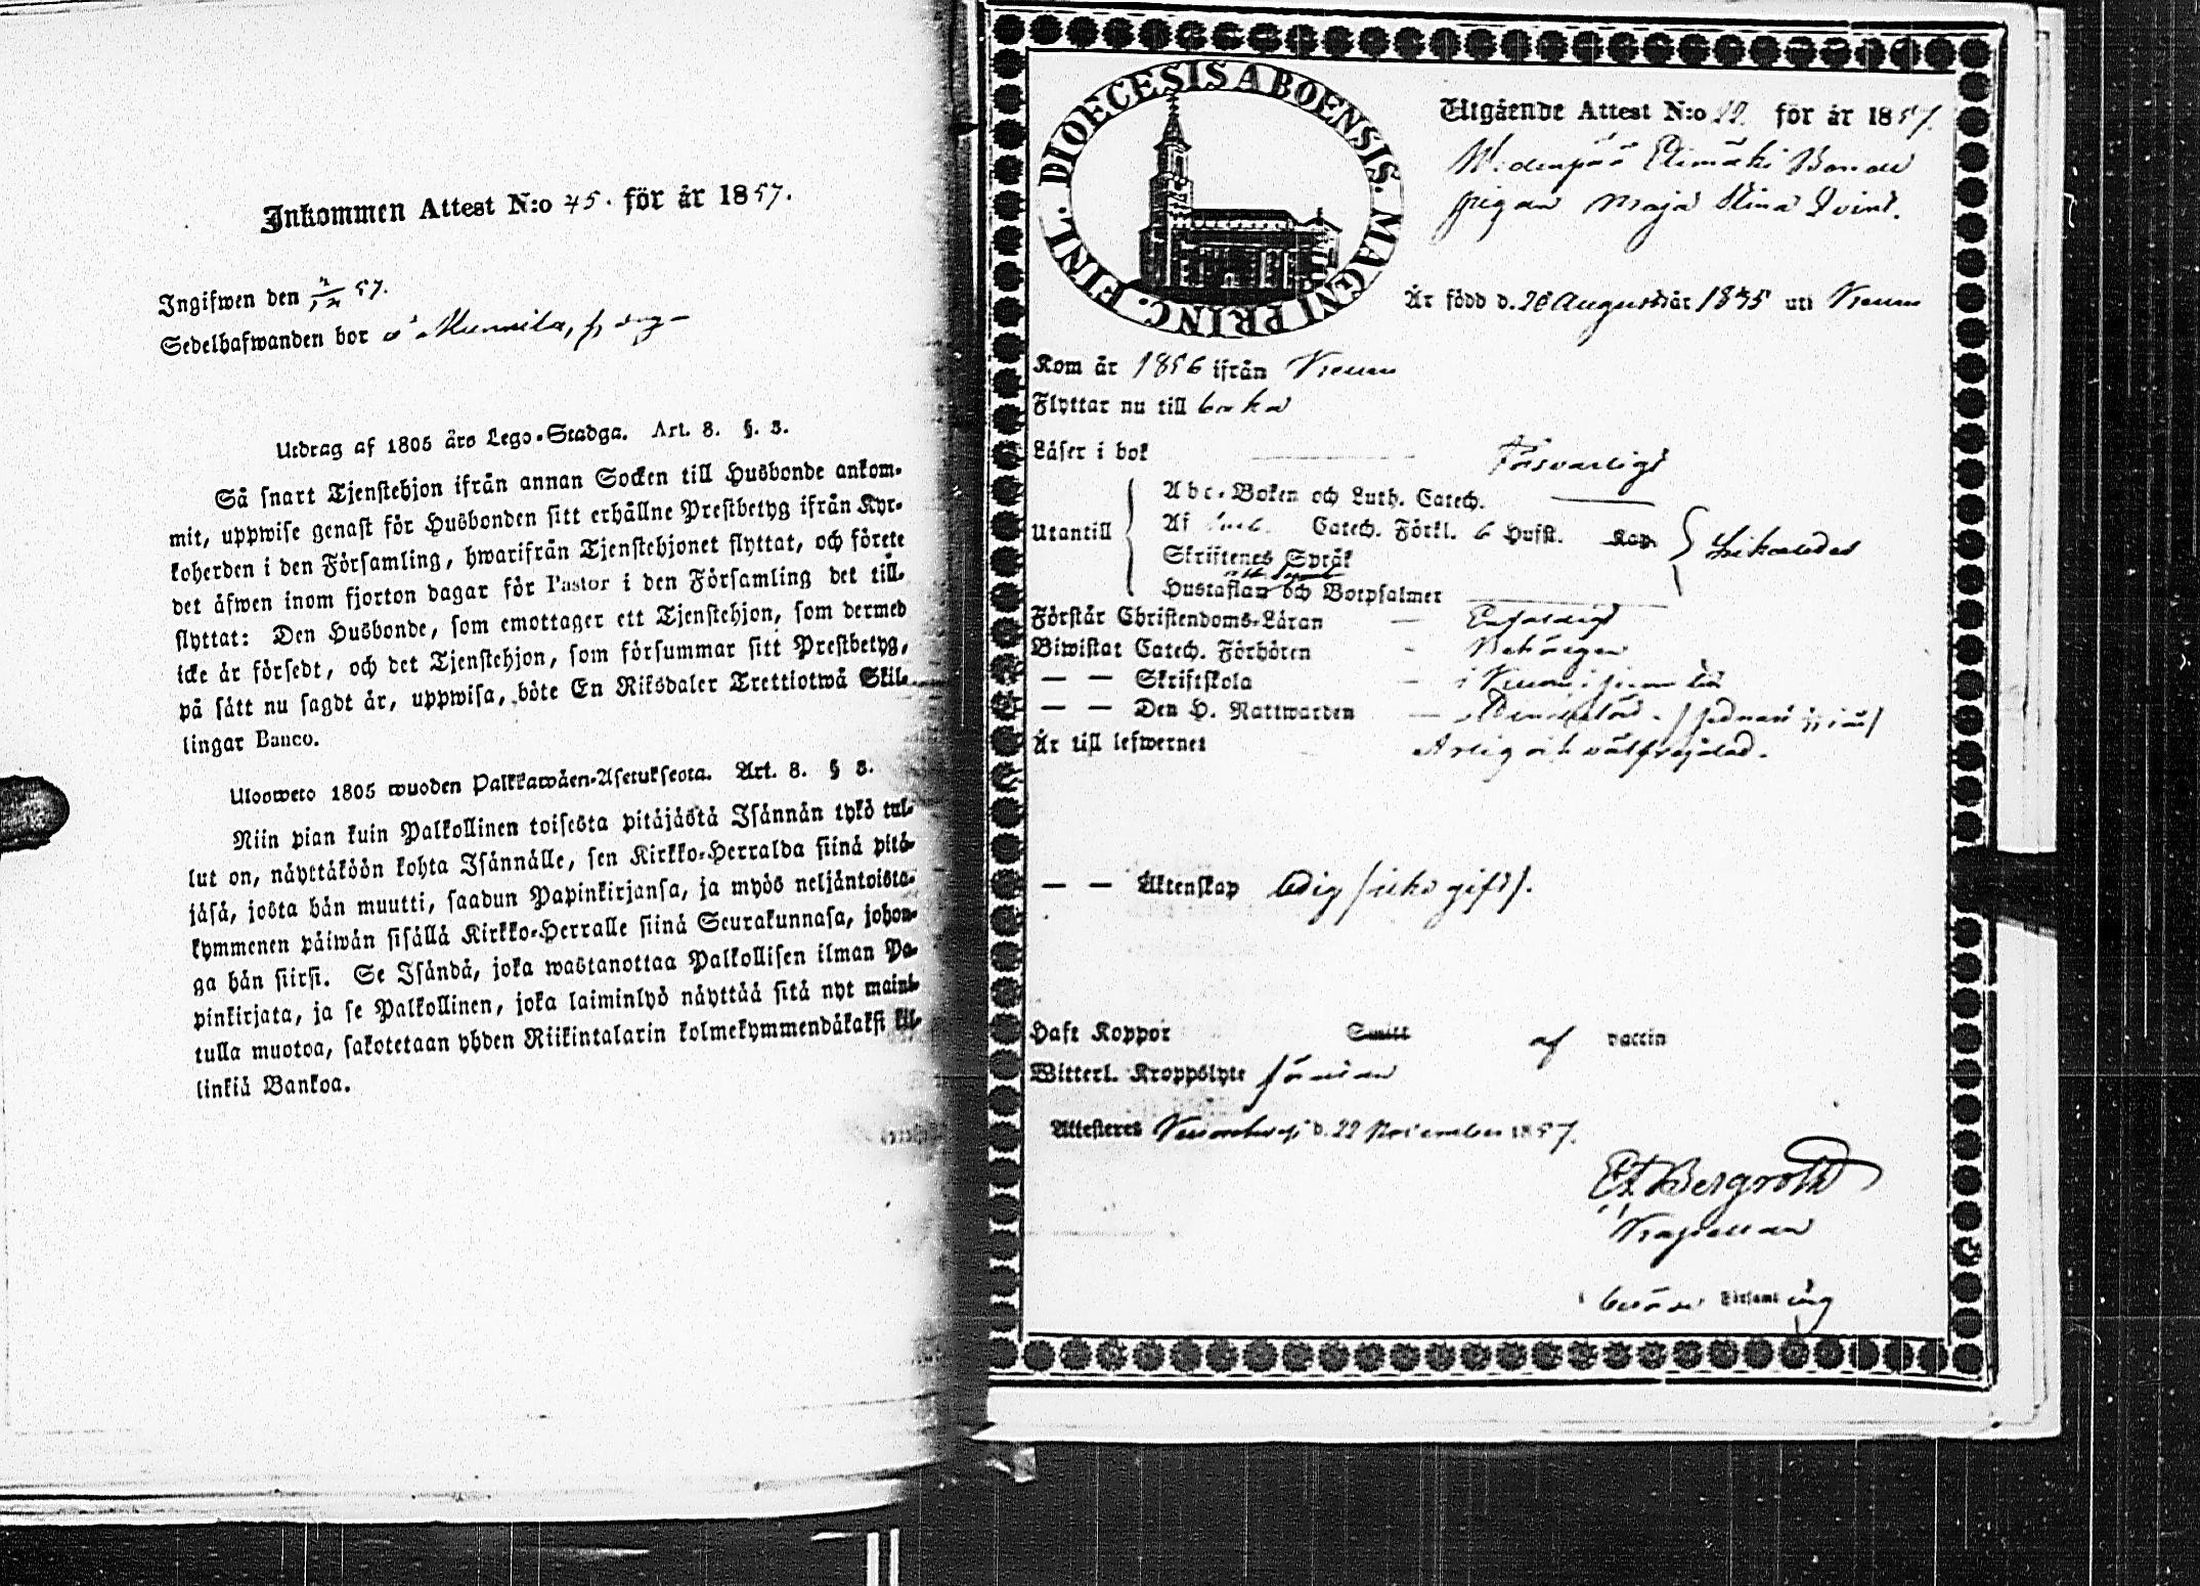 Inkommen Attest N:o 75. för år 1857.
Ingifwen den 57.
Sedelhafwanden bor å Munnila,
Utdrag af 1805 års Lego-Stadga. Art. 8. §. 3.
Så snart Tjenstehjon ifrån annan Socken till Husbonde ankom-
mit, uppwise genast för Husbonden sitt erhållne Prestbetyg ifrån Kyr-
koherden i den Församling, hwarifrån Tjenstehjonet flyttat, och förete
det äfwen inom fjorton dagar för Pastor i den Församling det till-
flyttat: Den Husbonde, som emottager ett Tjenstehjon, som dermed
icke är försedt, och det Tjenstehjon, som försummar sitt Prestbetyg,
på sätt nu sagdt är, uppwisa, böte En Riksdaler Trettiotwå Skil-
lingar Banco.
Ulosweto 1805 wuoden Palkkawäen-Asetuksesta. Art. 8. § 3.
Niin pian kuin Palkollinen toisesta pitäjästä Isännän tykö tul-
lut on, näyttäköön kohta Isännälle, sen Kirkko-Herralda siinä pitä-
jäsä, josta hän muutti, saadun Papinkirjansa, ja myös neljäntoista-
kymmenen päiwän sisällä Kirkko-Herralle siinä Seurakunnasa, johon-
ga hän siirsi. Se Isändä, joka wastanottaa Palkollisen ilman Pa-
pinkirjata, ja se Palkollinen, joka laiminlyö näyttää sitä nyt maini-
tulla muotoa, sakotetaan yhden Riikintalarin kolmekymmendäkaksi kil-
linkiä Bankoa.
DIOECESIS ABOENSIS. MAGNI PRINC. FINL.
Utgående Attest N:o 22. för år 1857.
Elimäki Bonde
pigan Maja Stina
Är född d. 26 Augusti år 1835 uti
Kom år 1856 ifrån
Flyttar nu till
Läser i bok Försvarligt
Abc-Boken och Luth. Catech.
Utantill Af Catech. Förkl. 6 Hufst. Kap.
Skriftenes Språk
Hustaflan och Botpsalmer
Förstår Christendoms-Läran — Enfaldigt
Biwistat Catech. Förhören - Behörigen
— — Skriftskola - i
— — Den H. Nattwarden —
Är till lefwernet Ärlig och välfrejdad.
— — Äktenskap ledig (icke gift).
Haft Koppor Smitt af vaccin
Witterl. Kroppslyte
Attesteres d. 22 November 1857.
Bergroth
Kapellan
i Församling